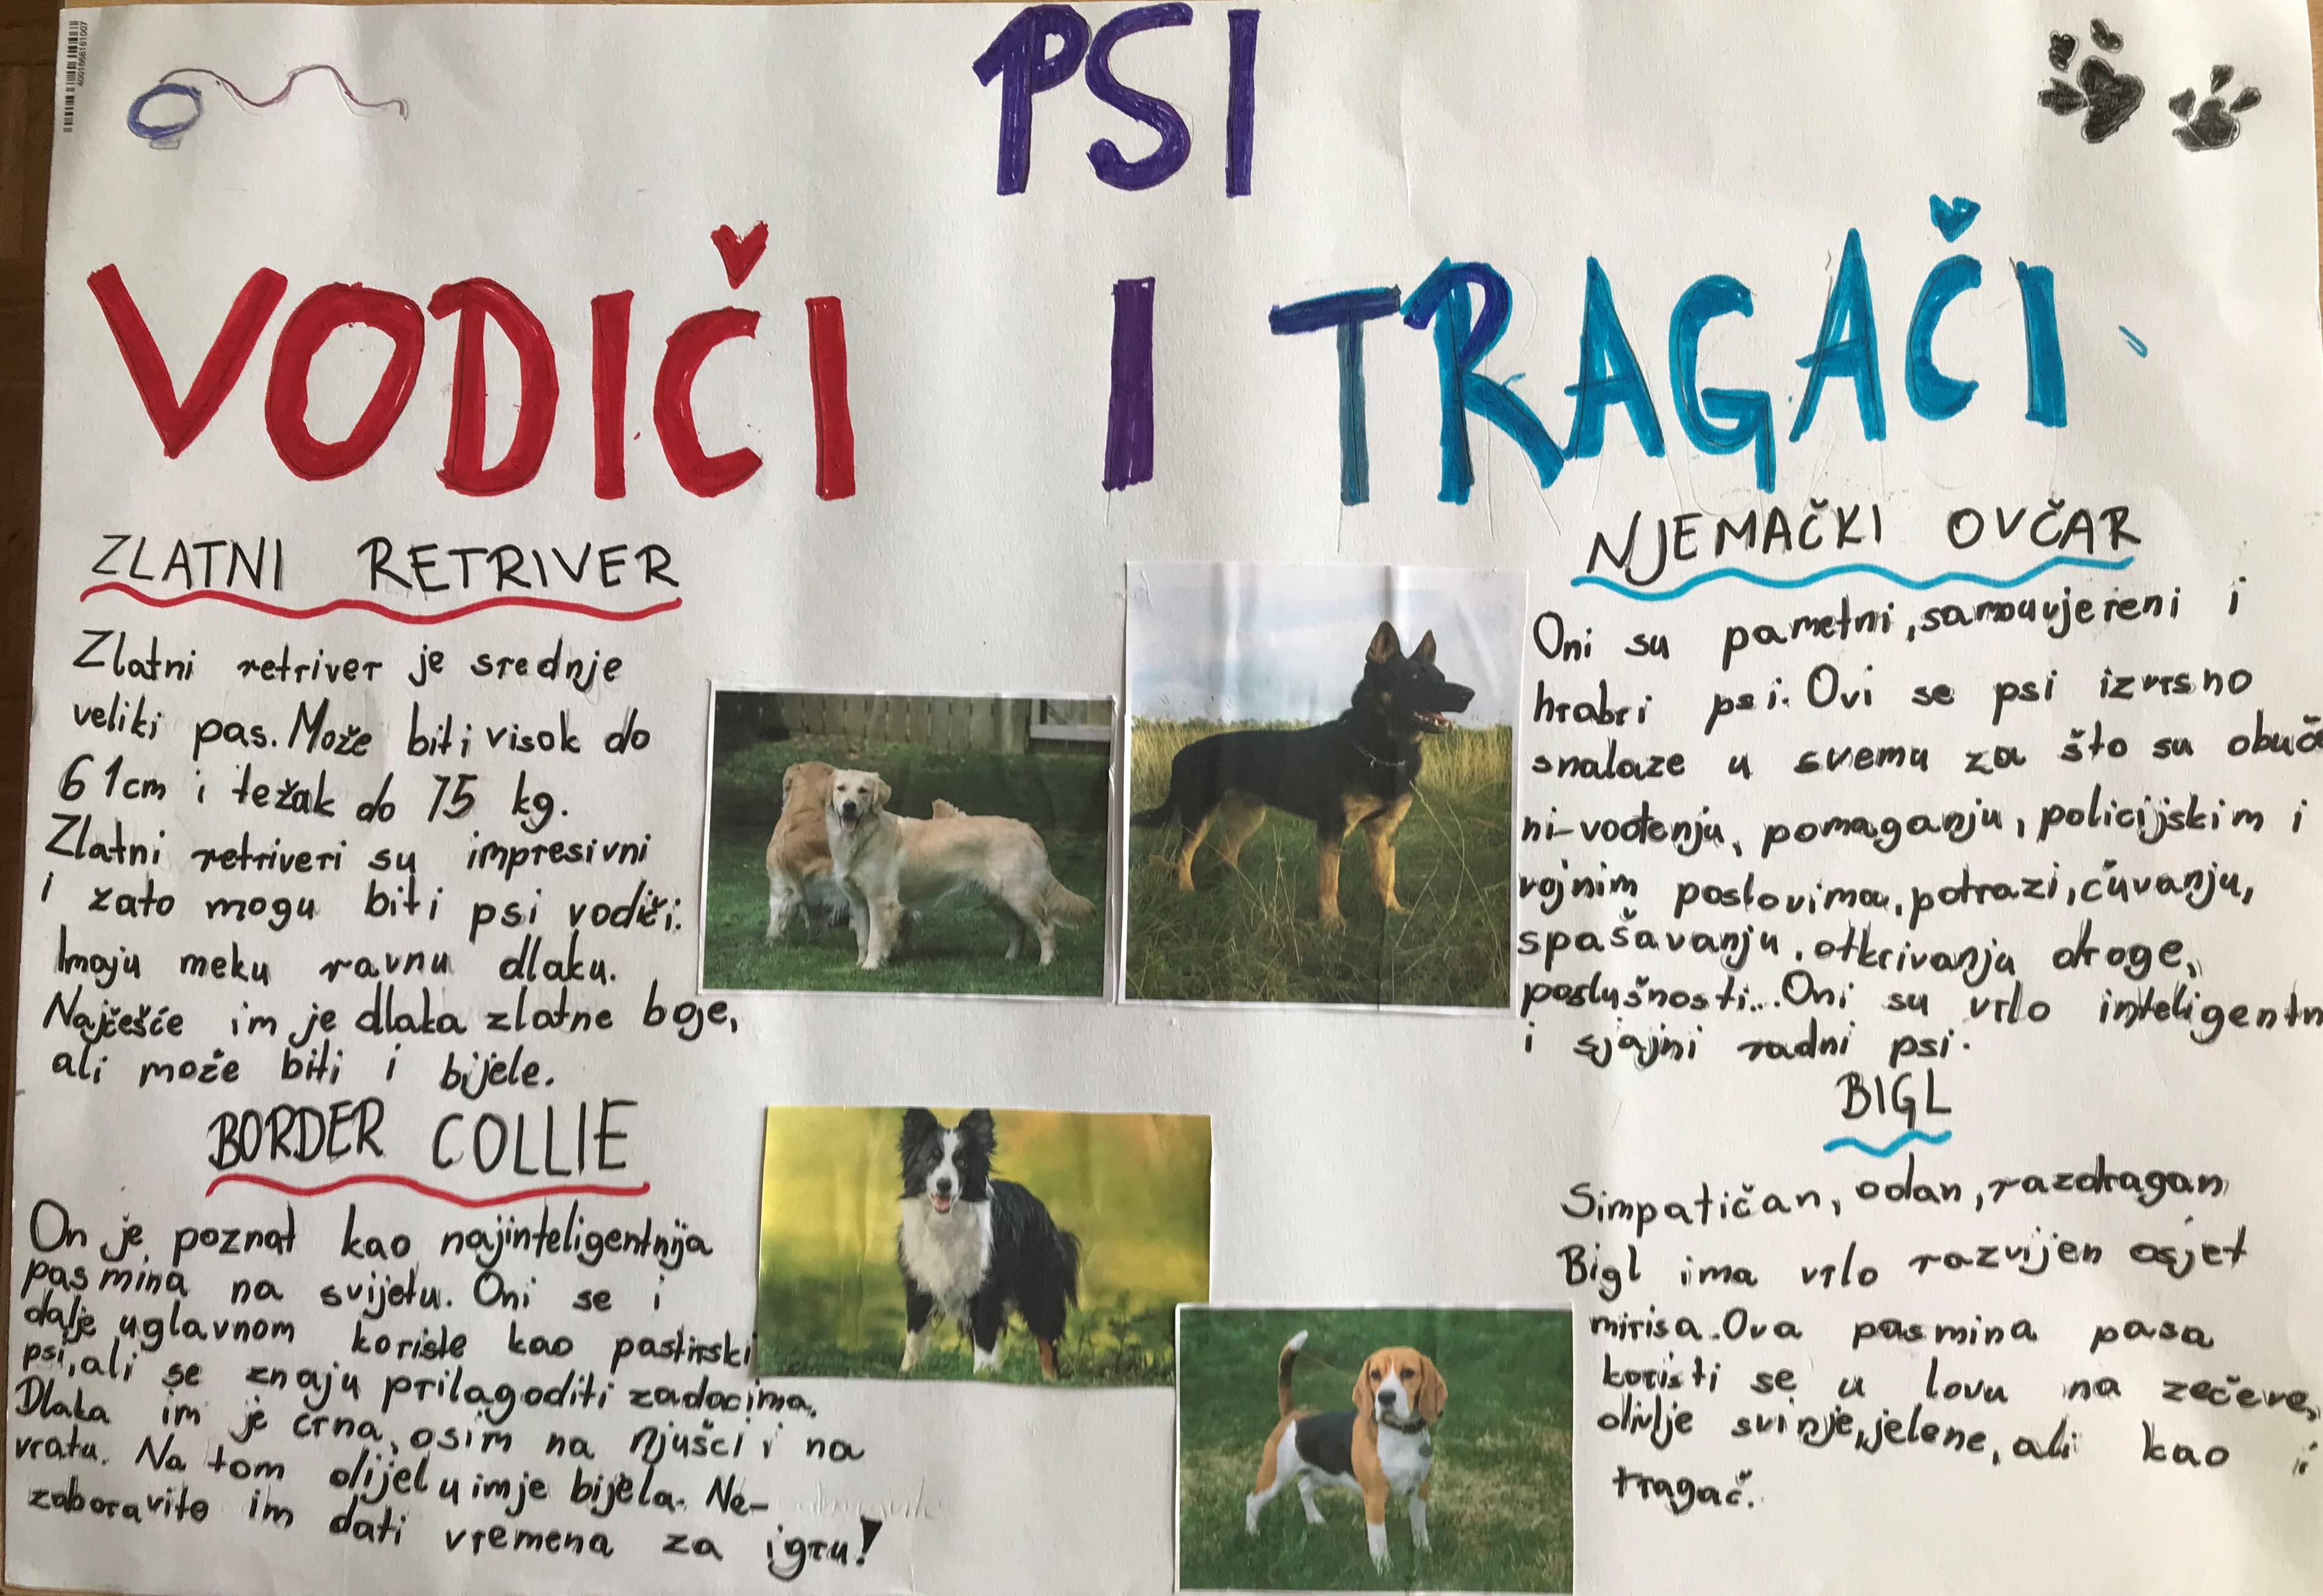 4001868101007
PSI
VODIČI I TRAGAČI
ZLATNI RETRIVER
Zlatni retriver je srednje
veliki pas. Može biti visok do
61cm i težak do 75 kg.
Zlatni retriveri su impresivni
i zato mogu biti psi vodiči.
Imaju meku ravnu dlaku.
Najčešće im je dlaka zlatne boje,
ali može biti i bijele.
BORDER COLLIE
On je poznat kao najinteligentnija
pasmina na svijetu. Oni se i
dalje uglavnom koriste kao pastirski
psi, ali se znaju prilagoditi zadacima.
Dlaka im je crna, osim na njušci i na
vratu. Na tom dijelu im je bijela. Ne-
zaboravite im dati vremena za igru!
NJEMAČKI OVČAR
Oni su pametni, samouvjereni i
hrabri psi. Ovi se psi izvrsno
snalaze u svemu za što su obuče
ni-vođenju, pomaganju, policijskim i
vojnim poslovima, potrazi, čuvanju,
spašavanju, otkrivanju droge,
poslušnosti... Oni su vrlo inteligentn
i sjajni radni psi.
BIGL
Simpatičan, odan, razdragan
Bigl ima vrlo razvijen osjet
mirisa. Ova pasmina pasa
koristi se u lovu na zečeve,
divlje svinje, jelene, ali kao i
tragač.